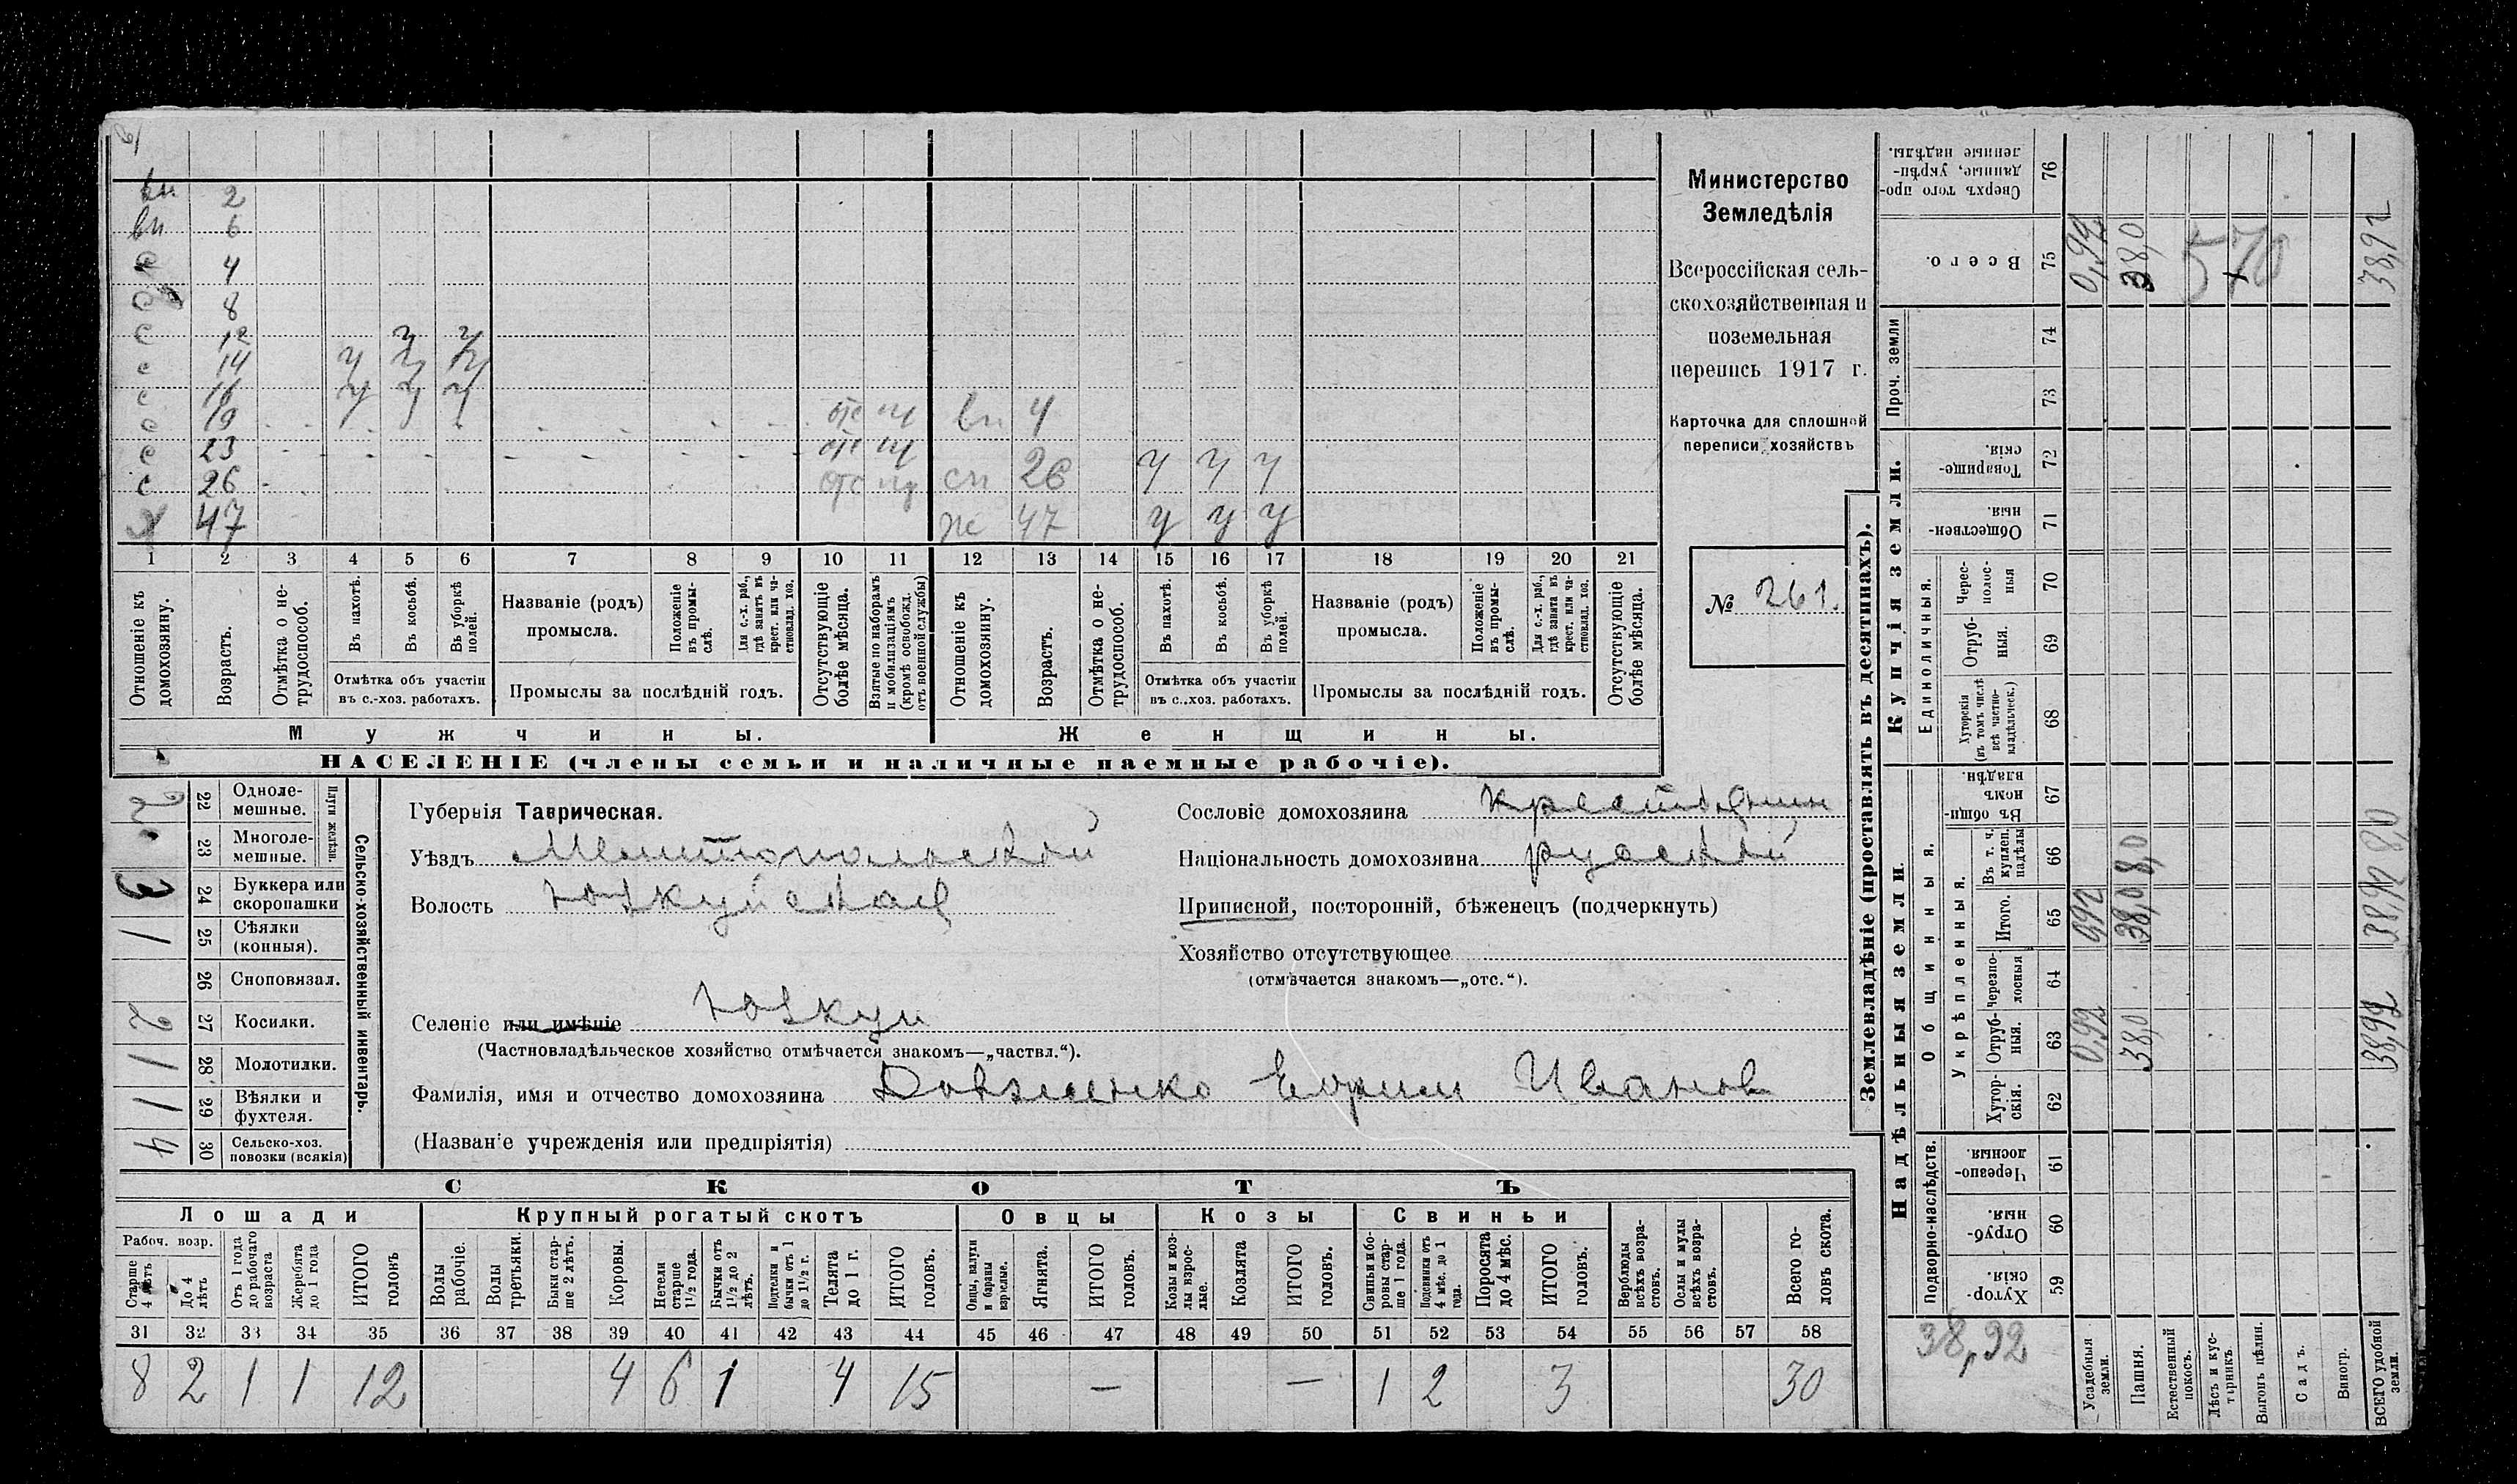 вн 2
вн 6
с 4
с 8
с 12 у у
с 14 у у у
с 16 у у у
с 19 отс вн 4
с 23 отс
с 26 отс сн 26 у у у
х 47 ж 47 у у у
1 2 3 4 5 6 7 8 9 10 11 12 13 14 15 16 17 18 19 20 21
Отношеніе къ домохозяину.
Возрастъ.
Отмѣтка о нетрудоспособ.
Въ пахотѣ.
Въ косьбѣ.
Въ уборкѣ полей.
Отмѣтка объ участіи въ с.-хоз. работахъ.
Названіе (родъ) промысла.
Положеніе въ промыслѣ.
Для с.-х. раб., гдѣ занятъ въ крест. или частновлад. хоз.
Промыслы за послѣдній годъ.
Отсутствующіе болѣе мѣсяца.
Взятые по наборамъ и мобилизаціямъ (кромѣ освобожд. отъ военной службы)
Отношеніе къ домохозяину.
Возрастъ.
Отмѣтка о нетрудоспособ.
Въ пахотѣ.
Въ косьбѣ.
Въ уборкѣ полей.
Отмѣтка объ участіи въ с.-хоз. работахъ.
Названіе (родъ) промысла.
Положеніе въ промыслѣ.
Для с.-х. раб., гдѣ занята въ крест. или частновлад. хоз.
Промыслы за послѣдній годъ.
Отсутствующіе болѣе мѣсяца.
Мужчины. Женщины.
НАСЕЛЕНІЕ (члены семьи и наличные наемные рабочіе).
Министерство
Земледѣлія
Всероссійская сель-
скохозяйственная и
поземельная
перепись 1917 г.
Карточка для сплошной
переписи хозяйствъ
№ 261.
Сельско-хозяйственный инвентарь.
Плуги желѣзн.
22 Одноле-
мешные.
23 Многоле-
мешные.
3 24 Буккера или
скоропашки
1 25 Сѣялки
(конныя).
26 Сноповязал.
2 27 Косилки.
1 28 Молотилки.
1 29 Вѣялки и
фухтеля.
4 30 Сельско-хоз.
повозки (всякія)
Губернія Таврическая.
Уѣздъ Мелитопольскій
Волость Юзкуйская
Селеніе или имѣніе Юзкуи
(Частновладѣльческое хозяйство отмѣчается знакомъ—„частвл.“).
Фамилія, имя и отчество домохозяина Довженко Ефим Иванов
(Названіе учрежденія или предпріятія)
Сословіе домохозяина крестьянин
Національность домохозяина русскій
Приписной, посторонній, бѣженецъ (подчеркнуть)
Хозяйство отсутствующее
(отмѣчается знакомъ—„отс.“).
СКОТЪ
Лошади Крупный рогатый скотъ Овцы Козы Свиньи
Рабоч. возр.
Старше 4 лѣтъ
До 4 лѣтъ
Отъ 1 года до рабочаго возраста
Жеребята до 1 года
ИТОГО головъ
Волы рабочіе.
Волы третьяки.
Быки старше 2 лѣтъ.
Коровы.
Нетели старше 1½ года.
Бычки отъ 1½ до 2 лѣтъ.
Подтелки и бычки отъ 1 до 1½ г.
Телята до 1 г.
ИТОГО головъ.
Овцы, валухи и бараны взрослые.
Ягнята.
ИТОГО головъ.
Козы и козлы взрослые.
Козлята
ИТОГО головъ.
Свиньи и боровы старше 1 года.
Подсвинки отъ 4 мѣс. до 1 года.
Поросята до 4 мѣс.
ИТОГО головъ.
Верблюды всѣхъ возрастовъ.
Ослы и мулы всѣхъ возрастовъ.
Всего головъ скота.
31 32 33 34 35 36 37 38 39 40 41 42 43 44 45 46 47 48 49 50 51 52 53 54 55 56 57 58
8 2 1 1 12 4 6 1 4 15 — — 1 2 3 30
Землевладѣніе (проставлять въ десятинахъ).
Надѣльныя земли.
Купчія земли.
Проч. земли
Подворно-наслѣдств.
Общинныя.
Укрѣпленныя.
Единоличныя.
Хуторскія. 59
Отрубныя. 60
Черезполосныя. 61
Хуторскія. 62
Отрубныя. 63
Черезполосныя 64
Итого. 65
Въ т. ч. куплен. надѣлы 66
Въ общинномъ владѣн. 67
Хуторскія (въ томъ числѣ всѣ частновладѣльческ.) 68
Отрубныя. 69
Чересполосныя 70
Общественныя. 71
Товарищескія. 72
73
74
Всего. 75
Сверхъ того проданные, укрѣпленные надѣлы. 76
38,92
Усадебныя земли. 0,92 0,92 0,92
Пашня. 38,0 38,0 8,0 38,0
Естественный покосъ.
Лѣсъ и кустарникъ.
Выгонъ цѣлин.
Садъ.
Виногр.
ВСЕГО удобной земли. 38,92 38,92 8,0 38,92
570